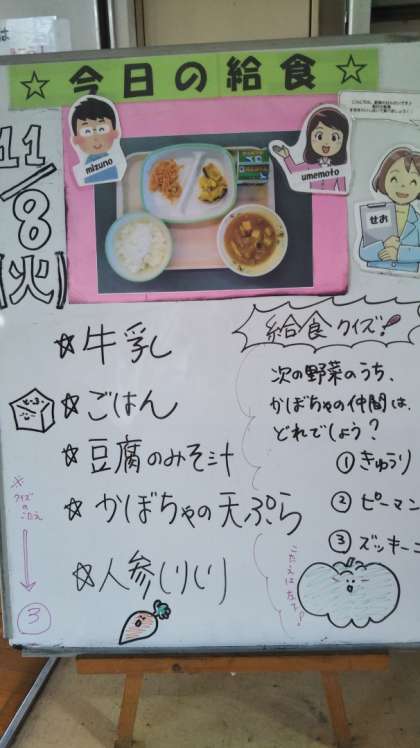 ☆今日の給食☆
11/8(火)
mizuno
umemoto
せお
☆牛乳
☆ごはん
☆豆腐のみそ汁
☆かぼちゃの天ぷら
☆人参しりしり
給食クイズ!
次の野菜のうち、
かぼちゃの仲間は、
どれでしょう?
①きゅうり
②ピーマン
③ズッキーニ
こたえは左を!
※クイズのこたえ
③